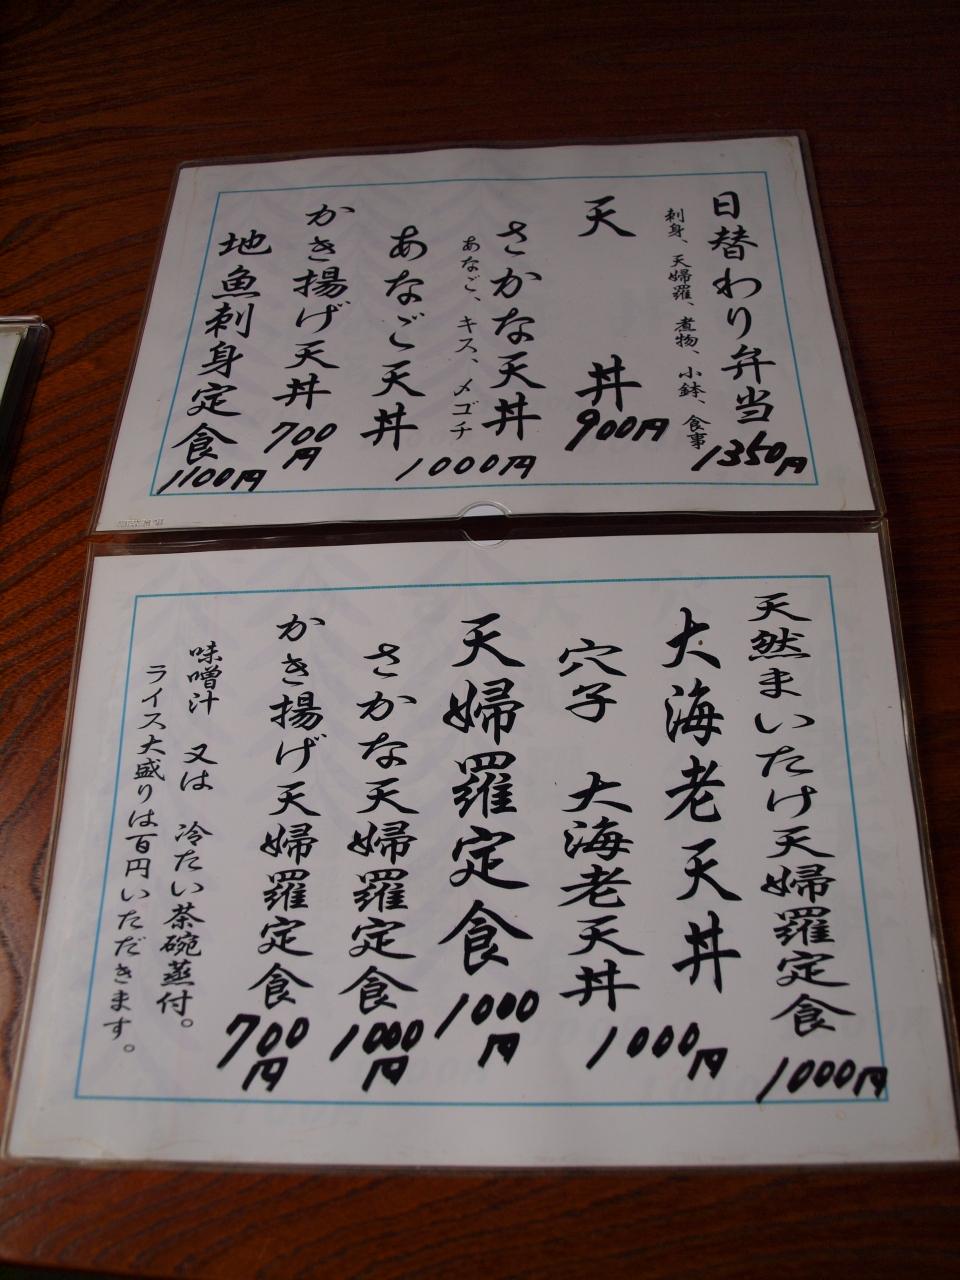 日替わり弁当
1350円
刺身、天婦羅、煮物、小鉢、食事
天丼
900円
さかな天丼
あなご、キス、メゴチ
あなご天丼
1000円
かき揚げ天丼
700円
地魚刺身定食
1100円
天然まいたけ天婦羅定食
1000円
大海老天丼
穴子 大海老天丼
1000円
天婦羅定食
1000円
さかな天婦羅定食
1000円
かき揚げ天婦羅定食
700円
味噌汁 又は 冷たい茶碗蒸付。
ライス大盛りは百円いただきます。